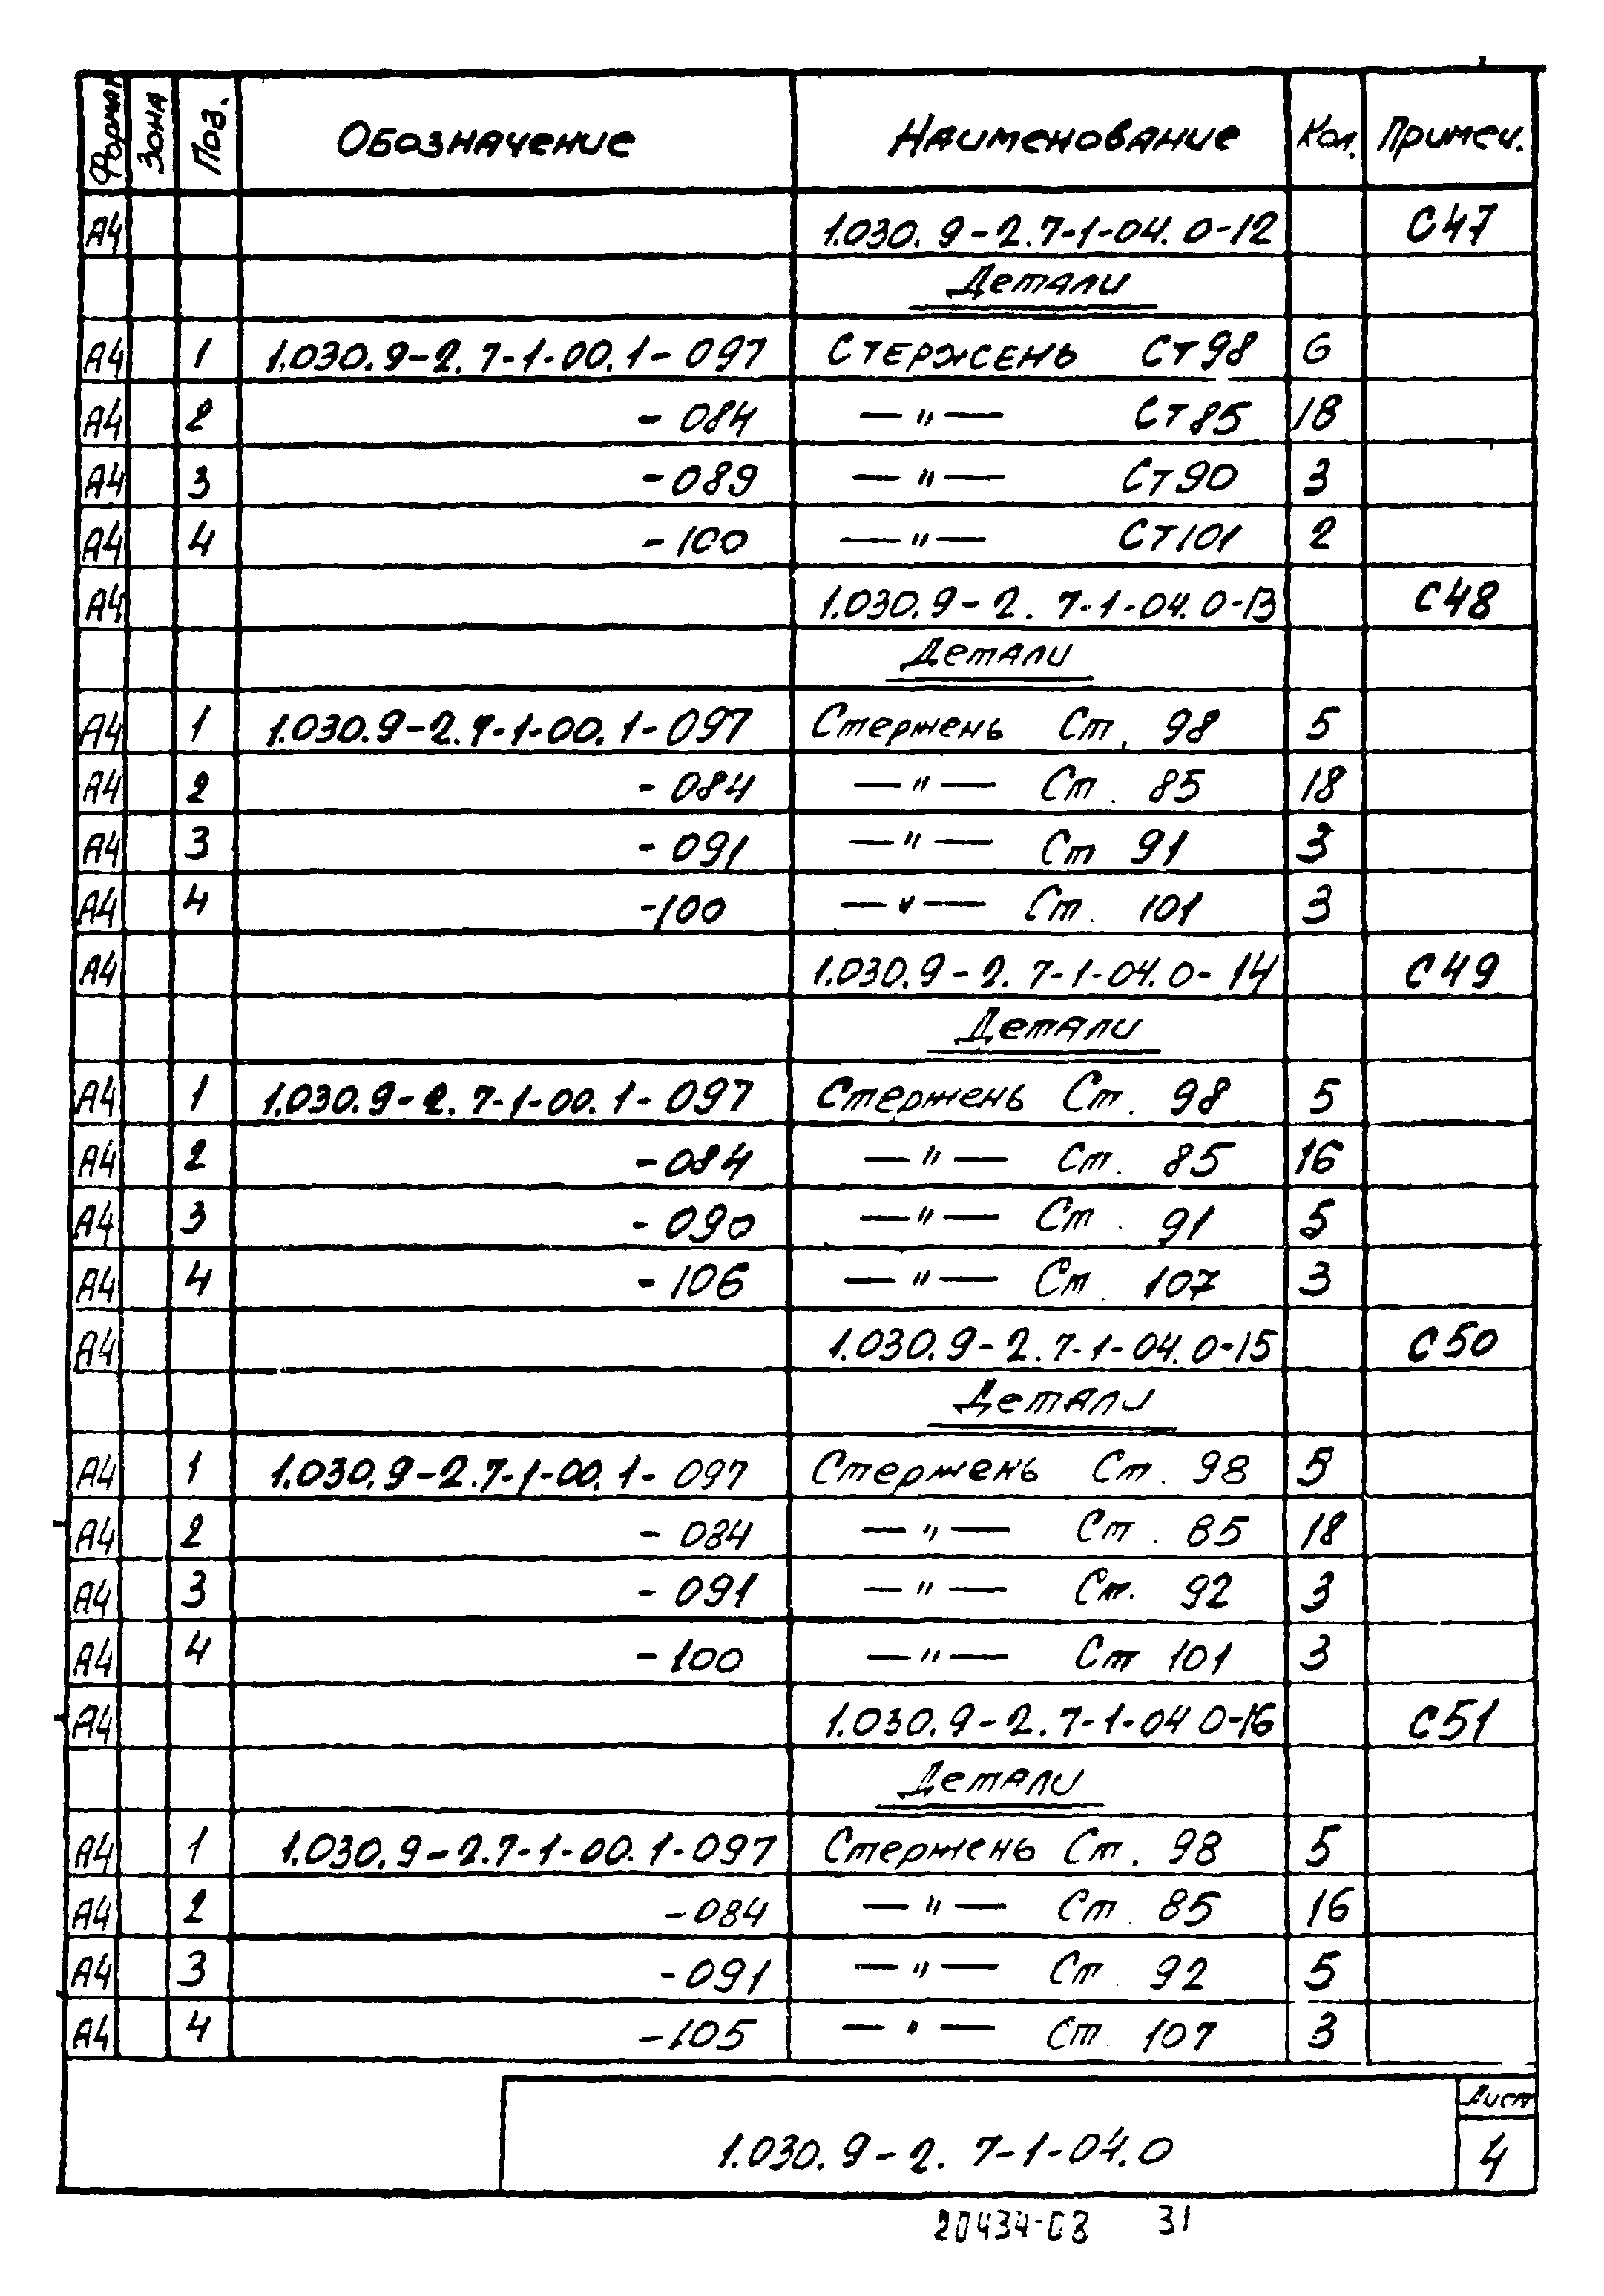 Формат Зона Поз. Обозначение Наименование Кол. Примеч.
А4 1.030.9-2.7-1-04.0-12 С47
Детали
А4 1 1.030.9-2.7-1-00.1-097 Стержень Ст98 6
А4 2 -084 —"— Ст85 18
А4 3 -089 —"— Ст90 3
А4 4 -100 —"— Ст101 2
А4 1.030.9-2.7-1-04.0-13 С48
Детали
А4 1 1.030.9-2.7-1-00.1-097 Стержень Ст. 98 5
А4 2 -084 —"— Ст. 85 18
А4 3 -091 —"— Ст 91 3
А4 4 -100 —"— Ст. 101 3
А4 1.030.9-2.7-1-04.0-14 С49
Детали
А4 1 1.030.9-2.7-1-00.1-097 Стержень Ст. 98 5
А4 2 -084 —"— Ст. 85 16
А4 3 -090 —"— Ст. 91 5
А4 4 -106 —"— Ст. 107 3
А4 1.030.9-2.7-1-04.0-15 С50
Детали
А4 1 1.030.9-2.7-1-00.1-097 Стержень Ст. 98 5
А4 2 -084 —"— Ст. 85 18
А4 3 -091 —"— Ст. 92 3
А4 4 -100 —"— Ст 101 3
А4 1.030.9-2.7-1-04 0-16 С51
Детали
А4 1 1.030.9-2.7-1-00.1-097 Стержень Ст. 98 5
А4 2 -084 —"— Ст. 85 16
А4 3 -091 —"— Ст 92 5
А4 4 -105 —"— Ст 107 3
Лист
1.030.9-2.7-1-04.0 4
20434-08 31